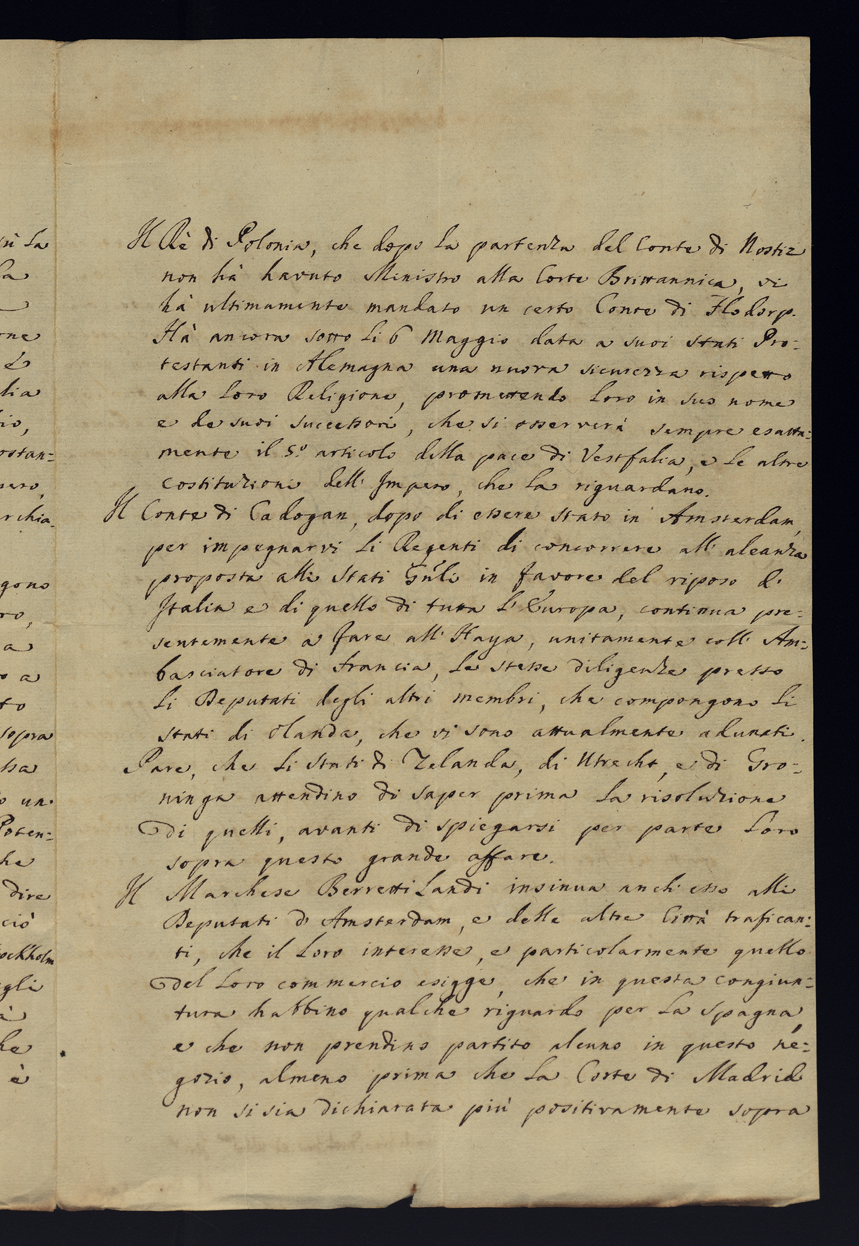 Il Rè di Polonia, che dopo la partenza del Conte di Nostiz
non hà havuto Ministro alla Corte Brittannica, vi
hà ultimamente mandato un certo Conte di Flodorp.
Hà ancora sotto li 6 Maggio data a suoi stati Pro=
testanti in Alemagna una nuova sicurezza rispetto
alla loro Religione, promettendo loro in suo nome
e de suoi successori, che si osserverà sempre esatta=
mente il 5.º articolo della pace di Vestfalia, e le altre
costituzioni dell' Impero, che la riguardano.
Il Conte di Cadogan, dopo di essere stato in Amsterdam,
per impegnarvi li Regenti di concorrere all' aleanza
proposta alli Stati Gñli in favore del riposo d'
Italia e di quello di tutta l'Europa, continua pre=
sentemente a fare all' Haya, unitamente coll' Am=
basciatore di Francia, le stesse diligenze presso
li Deputati degli altri membri, che compongono li
stati di Olanda, che vi sono attualmente adunati.
Pare, che li stati di Zelanda, di Utrecht, e di Gro=
ninga attendino di saper prima la risoluzione
di quelli, avanti di spiegarsi per parte loro
sopra questo grande affare.
Il Marchese Berretti Landi insinua anch' esso alli
Deputati d' Amsterdam, e delle altre Città trafican=
ti, che il loro interesse, e particolarmente quello
del loro commercio esigge, che in questa congiun=
tura habbino qualche riguardo per la Spagna,
e che non prendino partito alcuno in questo ne=
gozio, almeno prima che la Corte di Madrid
non si sia dichiarata più positivamente sopra